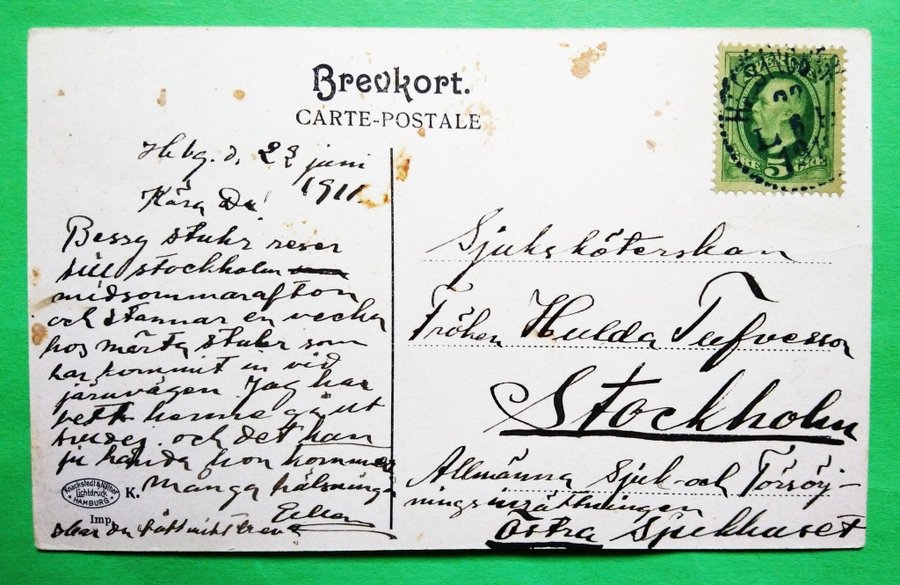 Brevkort.
CARTE-POSTALE
Hbg. d. 23 juni
1911.
Kära Du!
Bessy Stuhr reser
till Stockholm
midsommarafton
och stannar en vecka
hos Märta Stuhr som
har kommit in vid
järnvägen. Jag har
bett henne gå ut
och det kan
ju hända hon kommer
Många hälsningar
Ellen
har du fått mitt brev
Knackstedt & Näther
Lichtdruck
HAMBURG
K.
Imp.
SVERIGE
ÖRE 5 ÖRE
Sjuksköterskan
Fröken Hulda Tufvesson
Stockholm
Allmänna Sjuk- och Försörj-
ningsinrättningen
Östra Sjukhuset